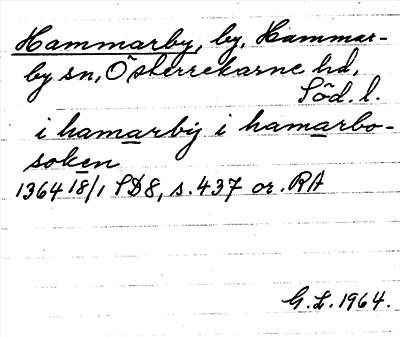 Hammarby, by, Hammar-
by sn, Österrekarne hd,
Söd. l.
i hamarbij i hamarbo-
soken
1364 18/1 SD8, s. 437 or. RA
G. L. 1964.